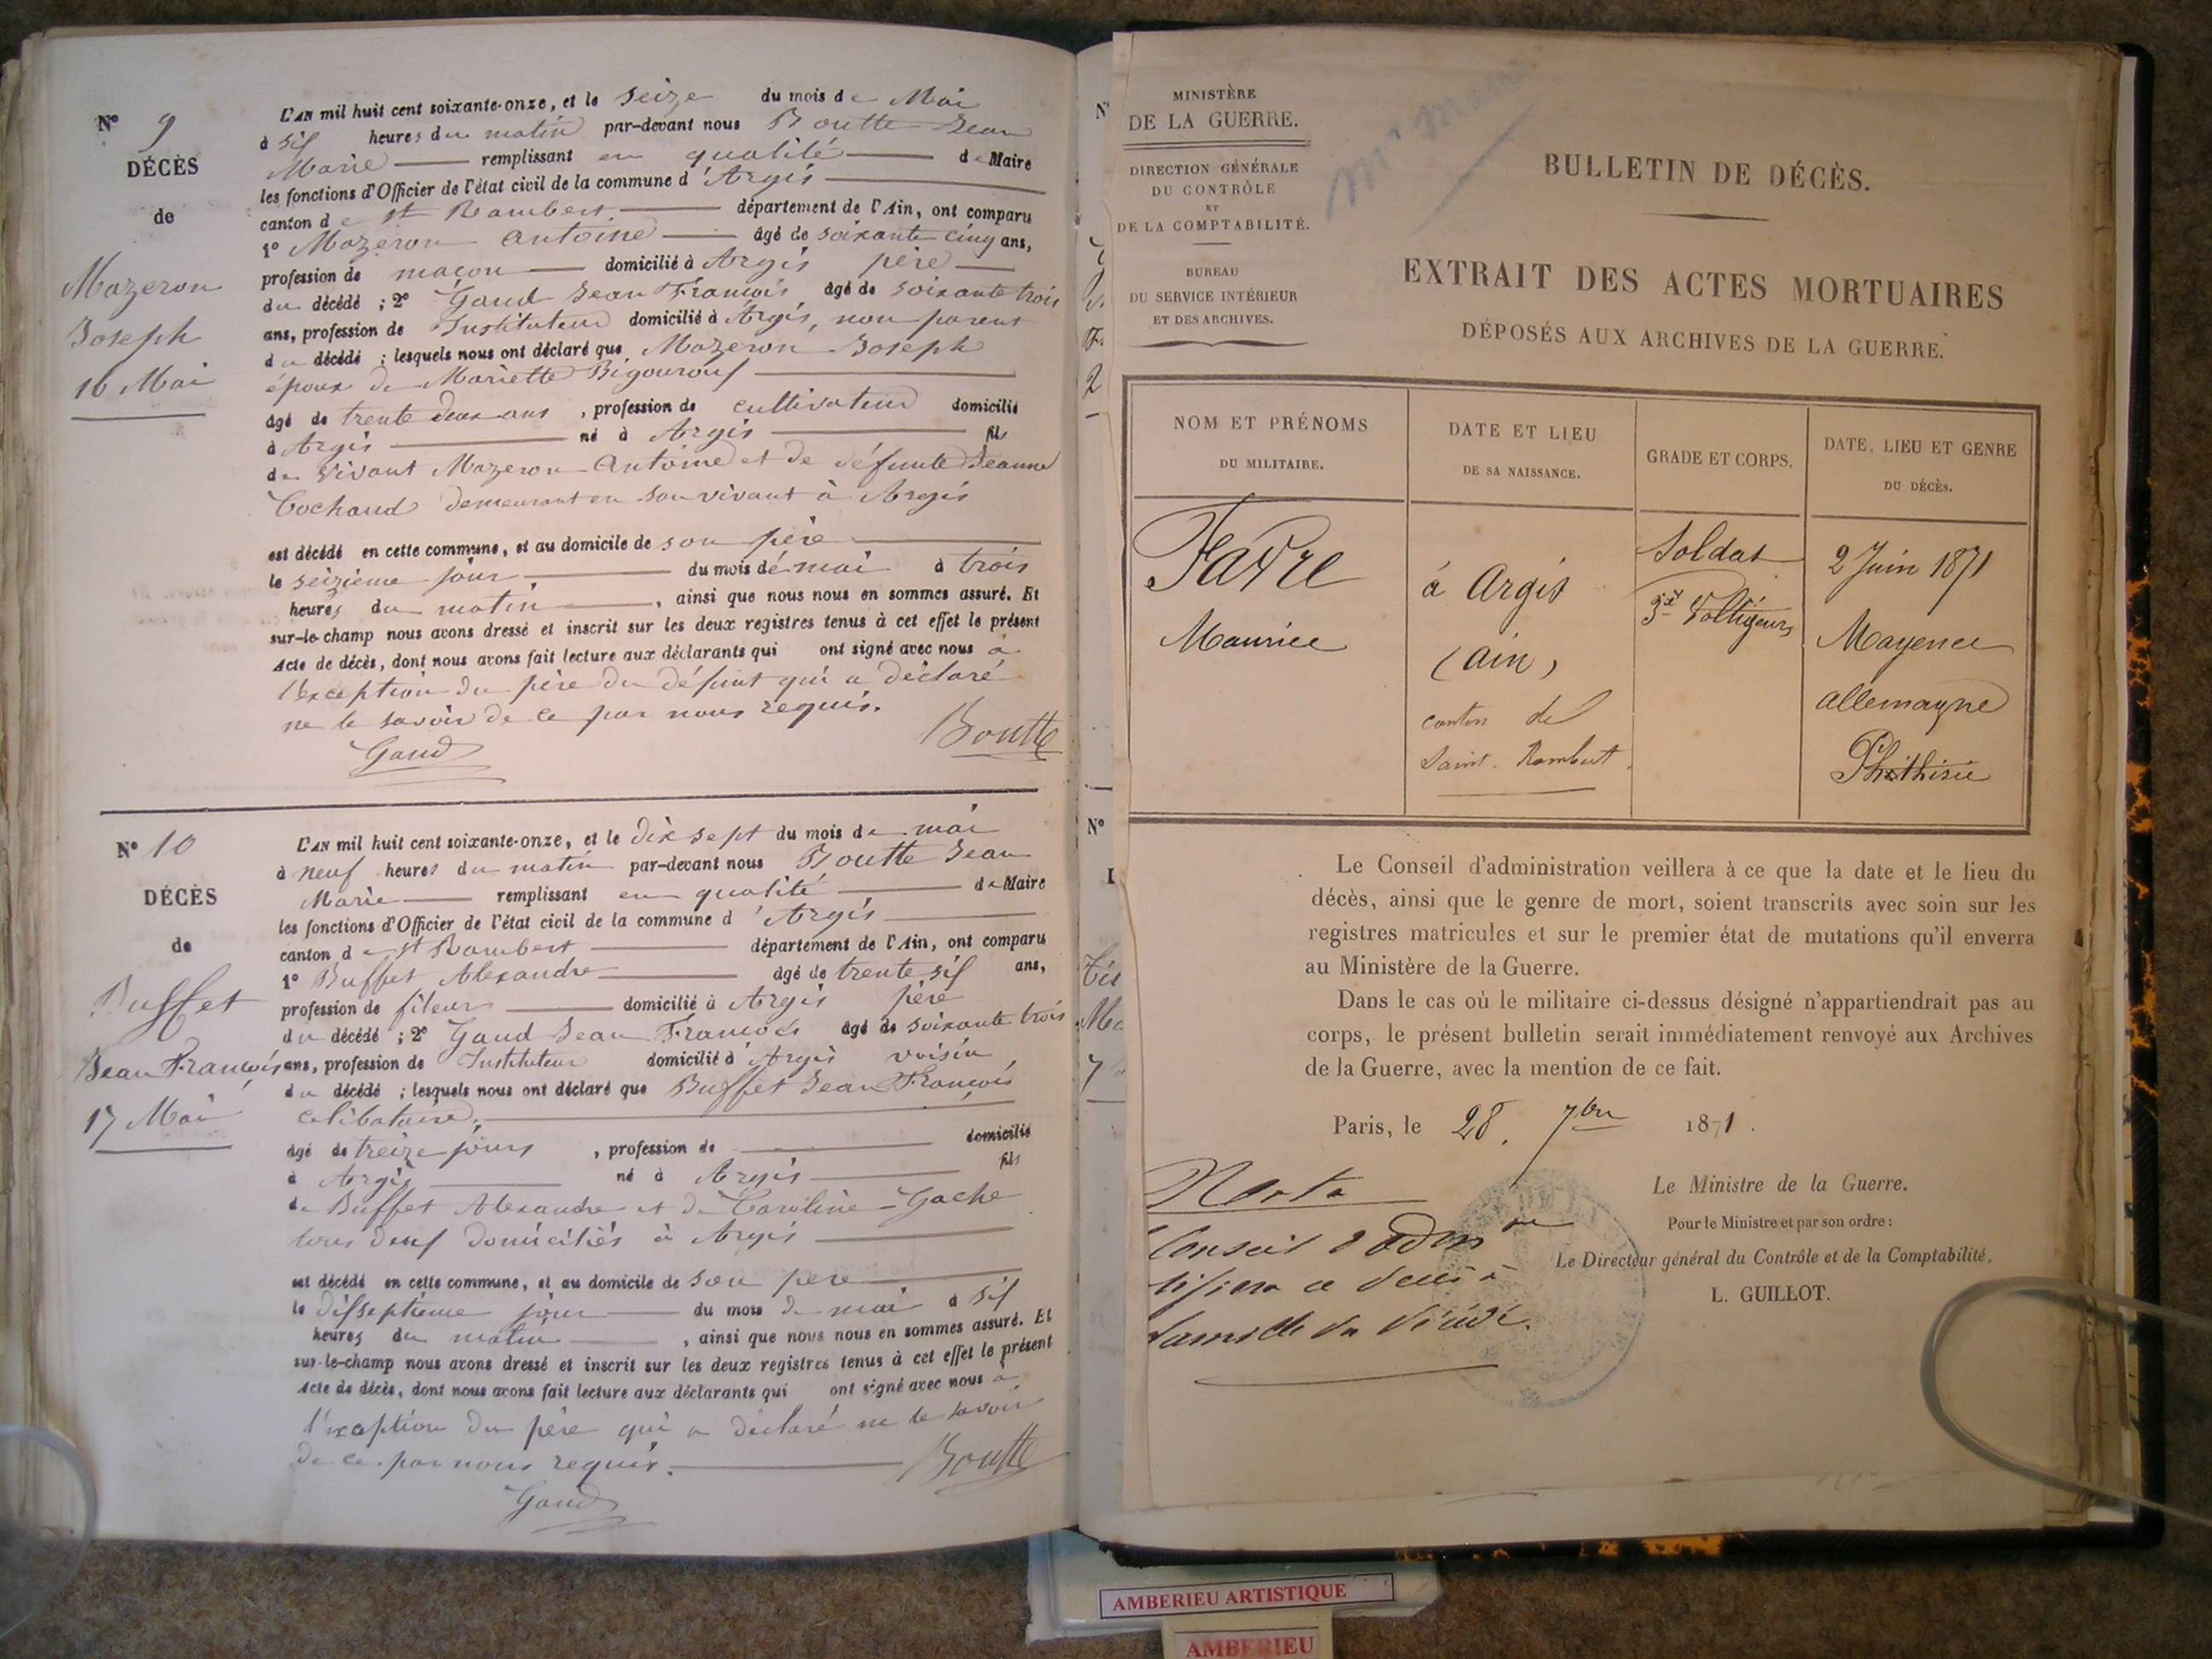 N° 9
DÉCÈS
de
Mazeron
Joseph
16 Mai
L'AN mil huit cent soixante-onze, et le Seize du mois de Mai
à Six heures du matin par-devant nous Boutte Jean
Marie remplissant en qualité de Maire
les fonctions d'Officier de l'état civil de la commune d'Argis
canton de St Rambert département de l'Ain, ont comparu
1° Mazeron Antoine âgé de soixante cinq ans,
profession de maçon domicilié à Argis père
du décédé ; 2° Gaud Jean François âgé de soixante trois
ans, profession de Instituteur domicilié à Argis, non parent
du décédé ; lesquels nous ont déclaré que Mazeron Joseph
époux de Mariette Bigourouf
âgé de trente deux ans , profession de cultivateur domicilié
à Argis né à Argis fils
de vivant Mazeron Antoine et de défunte Jeanne
Cochaud demeurant en son vivant à Argis
est décédé en cette commune, et au domicile de son père
le seizième jour du mois de mai à trois
heures du matin , ainsi que nous nous en sommes assuré. Et
sur-le-champ nous avons dressé et inscrit sur les deux registres tenus à cet effet le présent
Acte de décès, dont nous avons fait lecture aux déclarants qui ont signé avec nous à
l'exception du père du défunt qui a déclaré
ne le savoir de ce par nous requis.
Gaud Boutte
N° 10
DÉCÈS
de
Buffet
Jean François
17 Mai
L'AN mil huit cent soixante-onze, et le dix sept du mois de mai
à neuf heures du matin par-devant nous Boutte Jean
Marie remplissant en qualité de Maire
les fonctions d'Officier de l'état civil de la commune d'Argis
canton de St Rambert département de l'Ain, ont comparu
1° Buffet Alexandre âgé de trente six ans,
profession de fileur domicilié à Argis père
du décédé ; 2° Gaud Jean François âgé de soixante trois
ans, profession de Instituteur domicilié à Argis voisin
du décédé ; lesquels nous ont déclaré que Buffet Jean François
celibataire,
âgé de treize jours , profession de domicilié
à Argis né à Argis fils
de Buffet Alexandre et de Caroline Gache
tous deux domiciliés à Argis
est décédé en cette commune, et au domicile de son père
le dixseptième jour du mois de mai à six
heures du matin , ainsi que nous nous en sommes assuré. Et
sur-le-champ nous avons dressé et inscrit sur les deux registres tenus à cet effet le présent
Acte de décès, dont nous avons fait lecture aux déclarants qui ont signé avec nous à
l'exception du père qui a déclaré ne le savoir
de ce par nous requis.
Gaud Boutte
MINISTÈRE
DE LA GUERRE.
DIRECTION GÉNÉRALE
DU CONTRÔLE
ET
DE LA COMPTABILITÉ.
BUREAU
DU SERVICE INTÉRIEUR
ET DES ARCHIVES.
BULLETIN DE DÉCÈS.
EXTRAIT DES ACTES MORTUAIRES
DÉPOSÉS AUX ARCHIVES DE LA GUERRE.
NOM ET PRÉNOMS
DU MILITAIRE.
DATE ET LIEU
DE SA NAISSANCE.
GRADE ET CORPS.
DATE, LIEU ET GENRE
DU DÉCÈS.
Favre
Maurice
à Argis
(ain)
canton de
Saint-Rambert.
Soldat
3e Voltigeurs
2 Juin 1871
Mayence
allemagne
Phthisie
Le Conseil d'administration veillera à ce que la date et le lieu du
décès, ainsi que le genre de mort, soient transcrits avec soin sur les
registres matricules et sur le premier état de mutations qu'il enverra
au Ministère de la Guerre.
Dans le cas où le militaire ci-dessus désigné n'appartiendrait pas au
corps, le présent bulletin serait immédiatement renvoyé aux Archives
de la Guerre, avec la mention de ce fait.
Paris, le 28. 7bre 1871.
Le Ministre de la Guerre.
Pour le Ministre et par son ordre :
Le Directeur général du Contrôle et de la Comptabilité,
L. GUILLOT.
Nota
Conseil d'adm on
ce décès à
famille du décédé.
N°
N°
AMBERIEU ARTISTIQUE
AMBERIEU